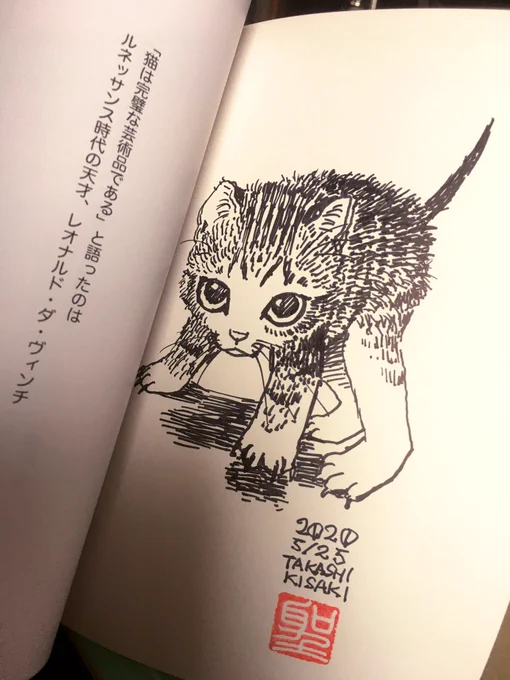 「猫は完璧な芸術品である」と語ったのは
ルネッサンス時代の天才、レオナルド・ダ・ヴィンチ
2020
5/25
TAKASHI
KISAKI
聖